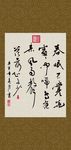 春眠不覺曉處
處聞啼鳥夜
來風雨聲
花落知多少